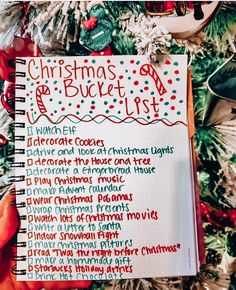 Christmas
Bucket
List
Watch Elf
decorate Cookies
drive and look at Christmas Lights
decorate the House and tree
decorate a Gingerbread House
Play Christmas music
make Advent Calendar
Wear Christmas Pajamas
Wrap Christmas Presents
Watch lots of Christmas movies
Write a letter to Santa
Indoor Snowball Fight
make Christmas pictures
read "Twas the night before Christmas"
make a homemade gift
Starbucks Holiday drinks
Drink Hot Chocolate